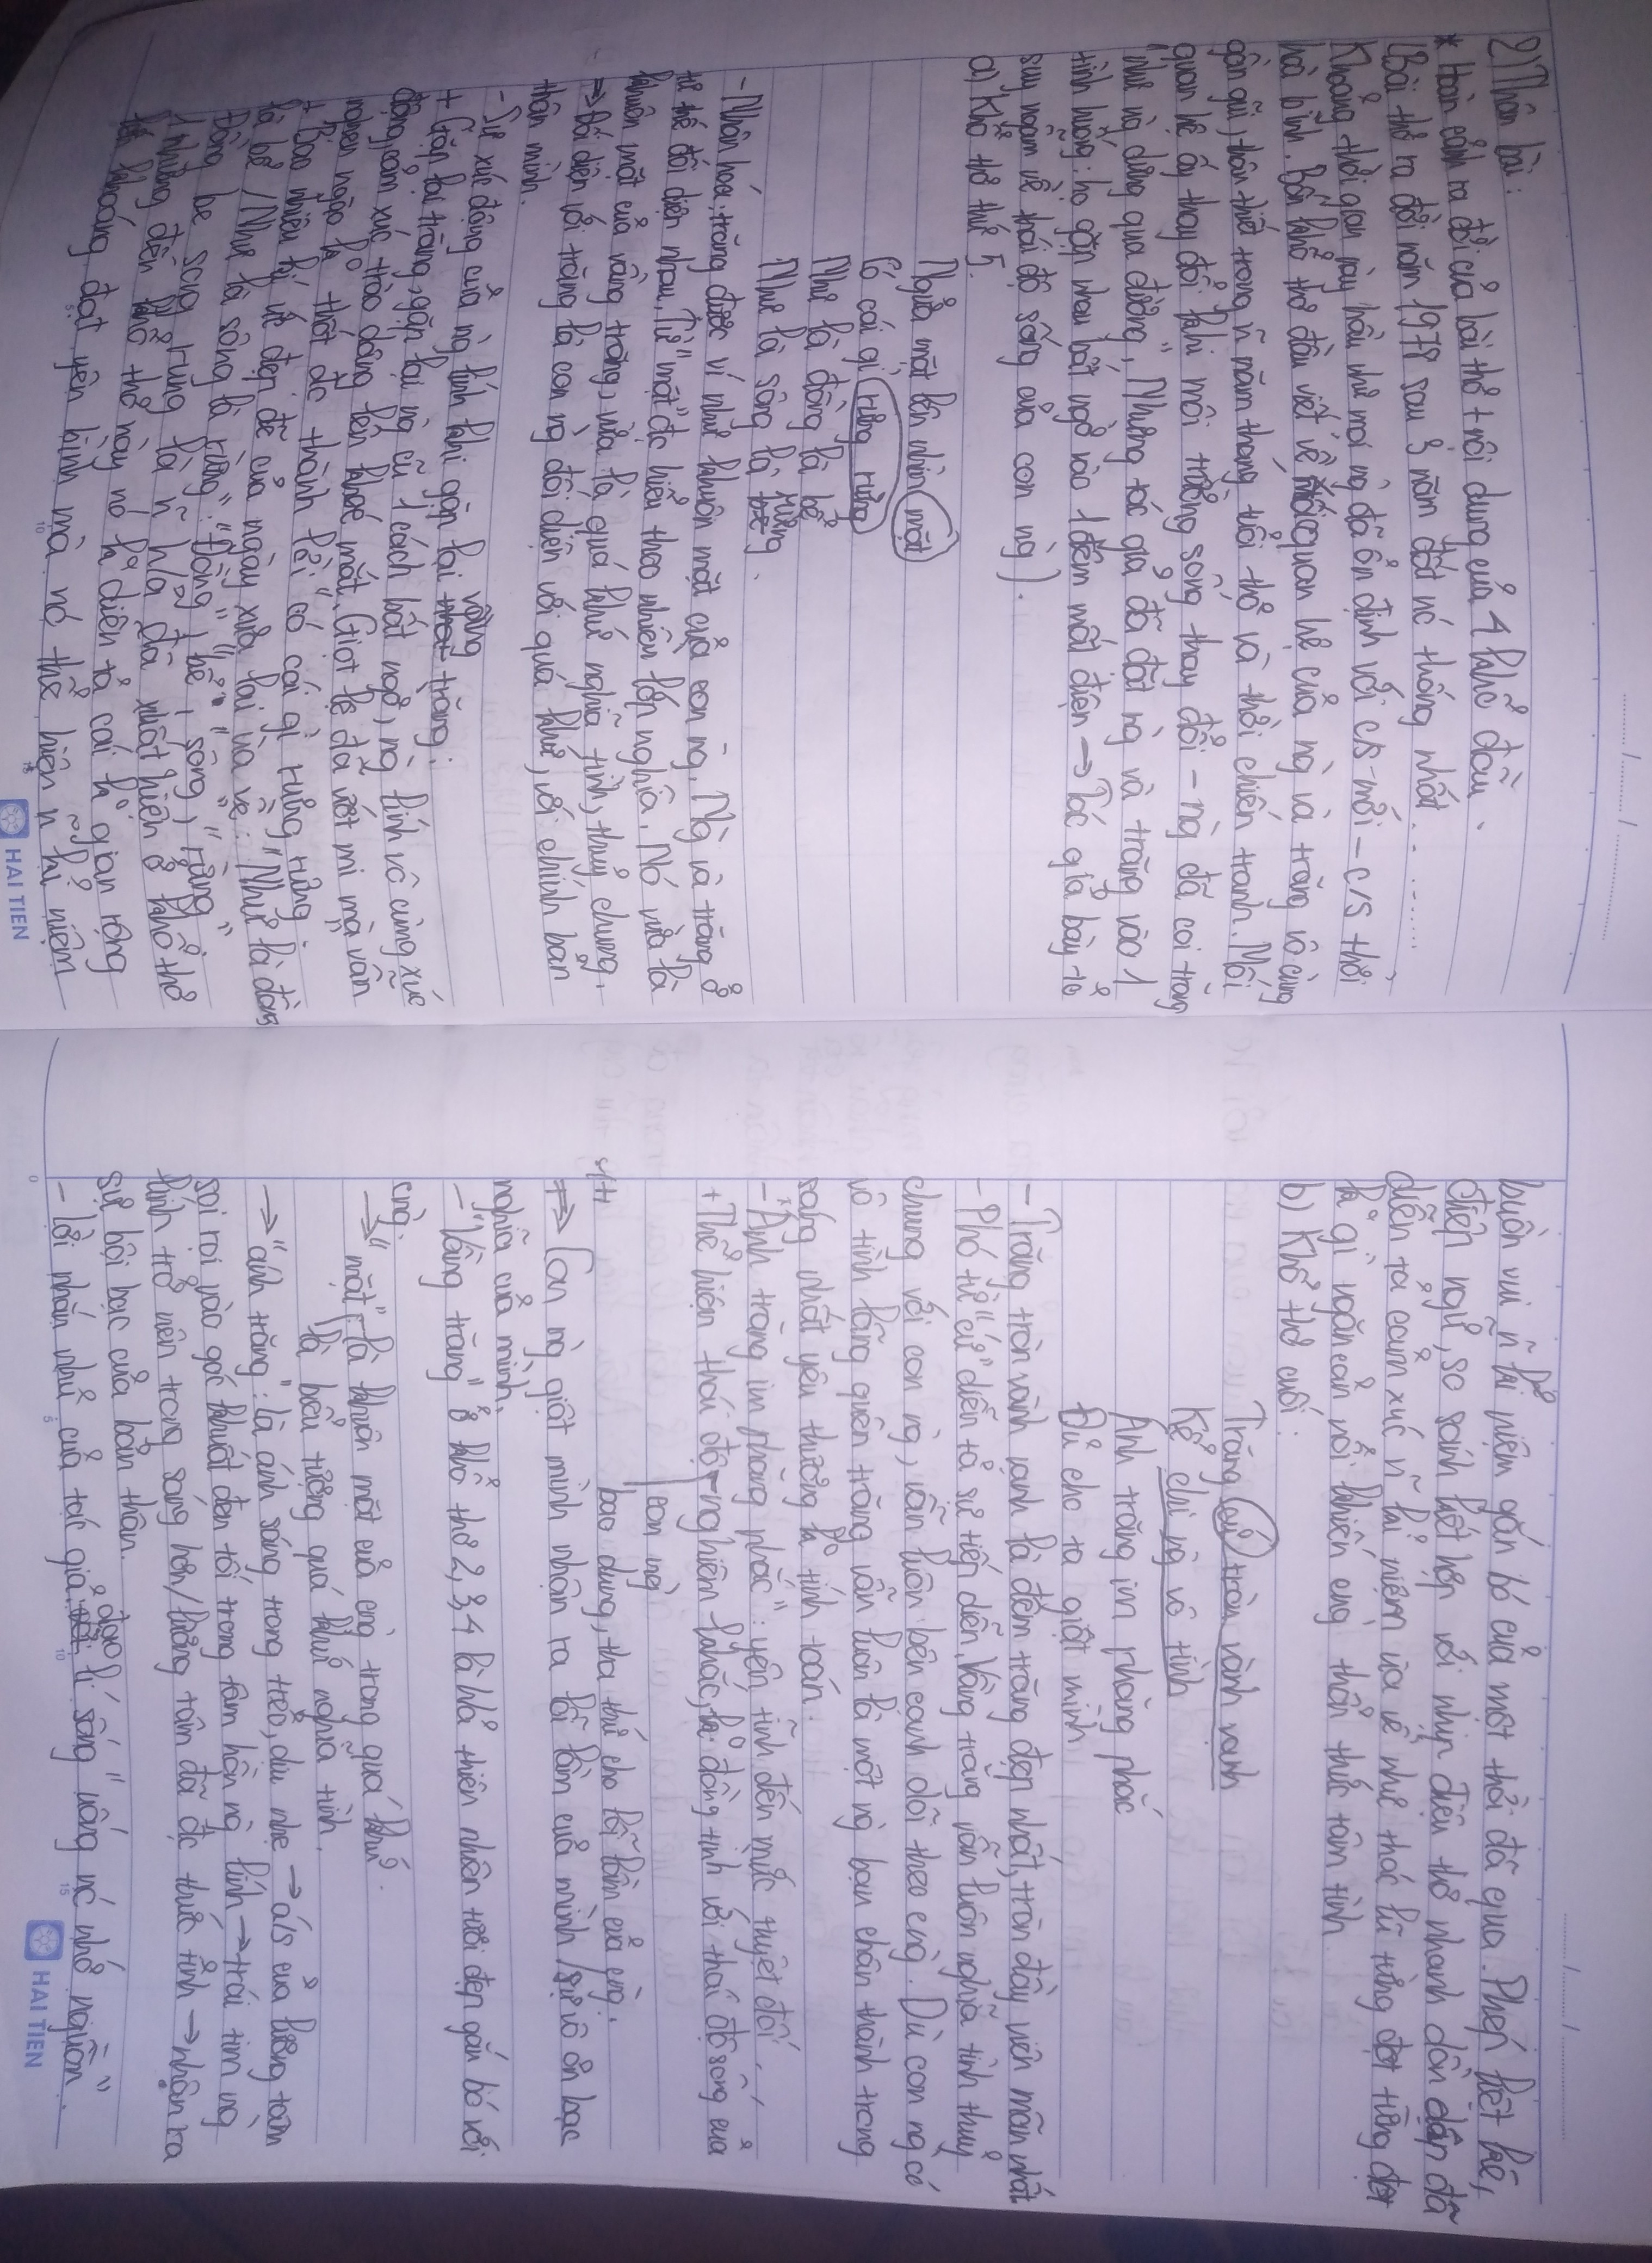 2) Thân bài:
* Hoàn cảnh ra đời của bài thơ + nội dung của 4 khổ đầu.
Bài thơ ra đời năm 1978 sau 3 năm đất nc thống nhất.........
Khoảng thời gian này hầu như mọi ng đã ổn định với c/s mới - c/s thời
hoà bình. Bốn khổ thơ đầu viết về mối quan hệ của ng và trăng vô cùng
gần gũi, thân thiết trong n~ năm tháng tuổi thơ và thời chiến tranh. Mối
quan hệ ấy thay đổi khi môi trường sống thay đổi - ng đã coi trăng
"như ng dưng qua đường". Nhưng tác giả đã đặt ng và trăng vào 1
tình huống: họ gặp nhau bất ngờ vào 1 đêm mất điện → Tác giả bày tỏ
suy ngẫm về thái độ sống của con ng).
a) Khổ thơ thứ 5.
Ngửa mặt lên nhìn mặt
Có cái gì rưng rưng
Như là đồng là bể
Như là sông là rừng.
- Nhân hoá: trăng được ví như khuôn mặt của con ng. Ng và trăng ở
tư thế đối diện nhau. Từ "mặt" đc hiểu theo nhiều lớp nghĩa. Nó vừa là
khuôn mặt của vầng trăng, vừa là quá khứ nghĩa tình, thuỷ chung.
⇒ Đối diện với trăng là con ng đối diện với quá khứ, với chính bản
thân mình.
- Sự xúc động của ng lính khi gặp lại vầng trăng:
+ Gặp lại trăng, gặp lại ng cũ 1 cách bất ngờ, ng lính vô cùng xúc
động, cảm xúc trào dâng lên khoé mắt. Giọt lệ đã ướt mi mà vẫn
nghẹn ngào ko thốt đc thành lời "có cái gì rưng rưng".
+ Bao nhiêu kí ức đẹp đẽ của ngày xưa lại ùa về: "Như là đồng
là bể / Như là sông là rừng": "Đồng", "bể", "sông", "rừng"
Đồng bể sông rừng là n~ h/a đã xuất hiện ở khổ thơ
1 nhưng đến khổ thơ này nó k diễn tả cái k gian rộng
lớn khoáng đạt yên bình mà nó thể hiện n~ kỉ niệm
buồn vui n~ kỉ niệm gắn bó của một thời đã qua. Phép liệt kê,
điệp ngữ, so sánh kết hợp với nhịp điệu thơ nhanh dồn dập đã
diễn tả cảm xúc n~ kỉ niệm ùa về như thác lũ từng đợt từng đợt
k gì ngăn cản nổi khiến cng thổn thức tâm tình.
b) Khổ thơ cuối:
Trăng cứ tròn vành vạnh
Kể chi ng vô tình
Ánh trăng im phăng phắc
Đủ cho ta giật mình
- Trăng tròn vành vạnh là đêm trăng đẹp nhất, tròn đầy viên mãn nhất
- Phó từ "cứ" diễn tả sự tiếp diễn. Vầng trăng vẫn luôn nghĩa tình thuỷ
chung với con ng, vẫn luôn bên cạnh dõi theo cng. Dù con ng có
vô tình lãng quên trăng vẫn luôn là một ng bạn chân thành trong
sáng nhất yêu thương ko tính toán.
- "Ánh trăng im phăng phắc": yên tĩnh đến mức tuyệt đối.
+ Thể hiện thái độ nghiêm khắc, ko đồng tình với thái độ sống của
con ng
bao dung, tha thứ cho lỗi lầm của cng.
⇒ Con ng giật mình nhận ra lỗi lầm của mình / sự vô ơn bạc
nghĩa của mình.
- "Vầng trăng" ở khổ thơ 2, 3, 4 là h/a thiên nhiên tươi đẹp gắn bó với
cng.
→ "mặt": là khuôn mặt của cng trong quá khứ.
là biểu tượng quá khứ nghĩa tình.
→ "ánh trăng": là ánh sáng trong trẻo, dịu nhẹ → a/s của lương tâm
soi rọi vào góc khuất đen tối trong tâm hồn ng lính → trái tim ng
lính trở nên trong sáng hơn / lương tâm đã đc thức tỉnh → nhận ra
sự bội bạc của bản thân.
- lời nhắn nhủ của tác giả: đạo lí sống "uống nc nhớ nguồn".
HAI TIEN
HAI TIEN